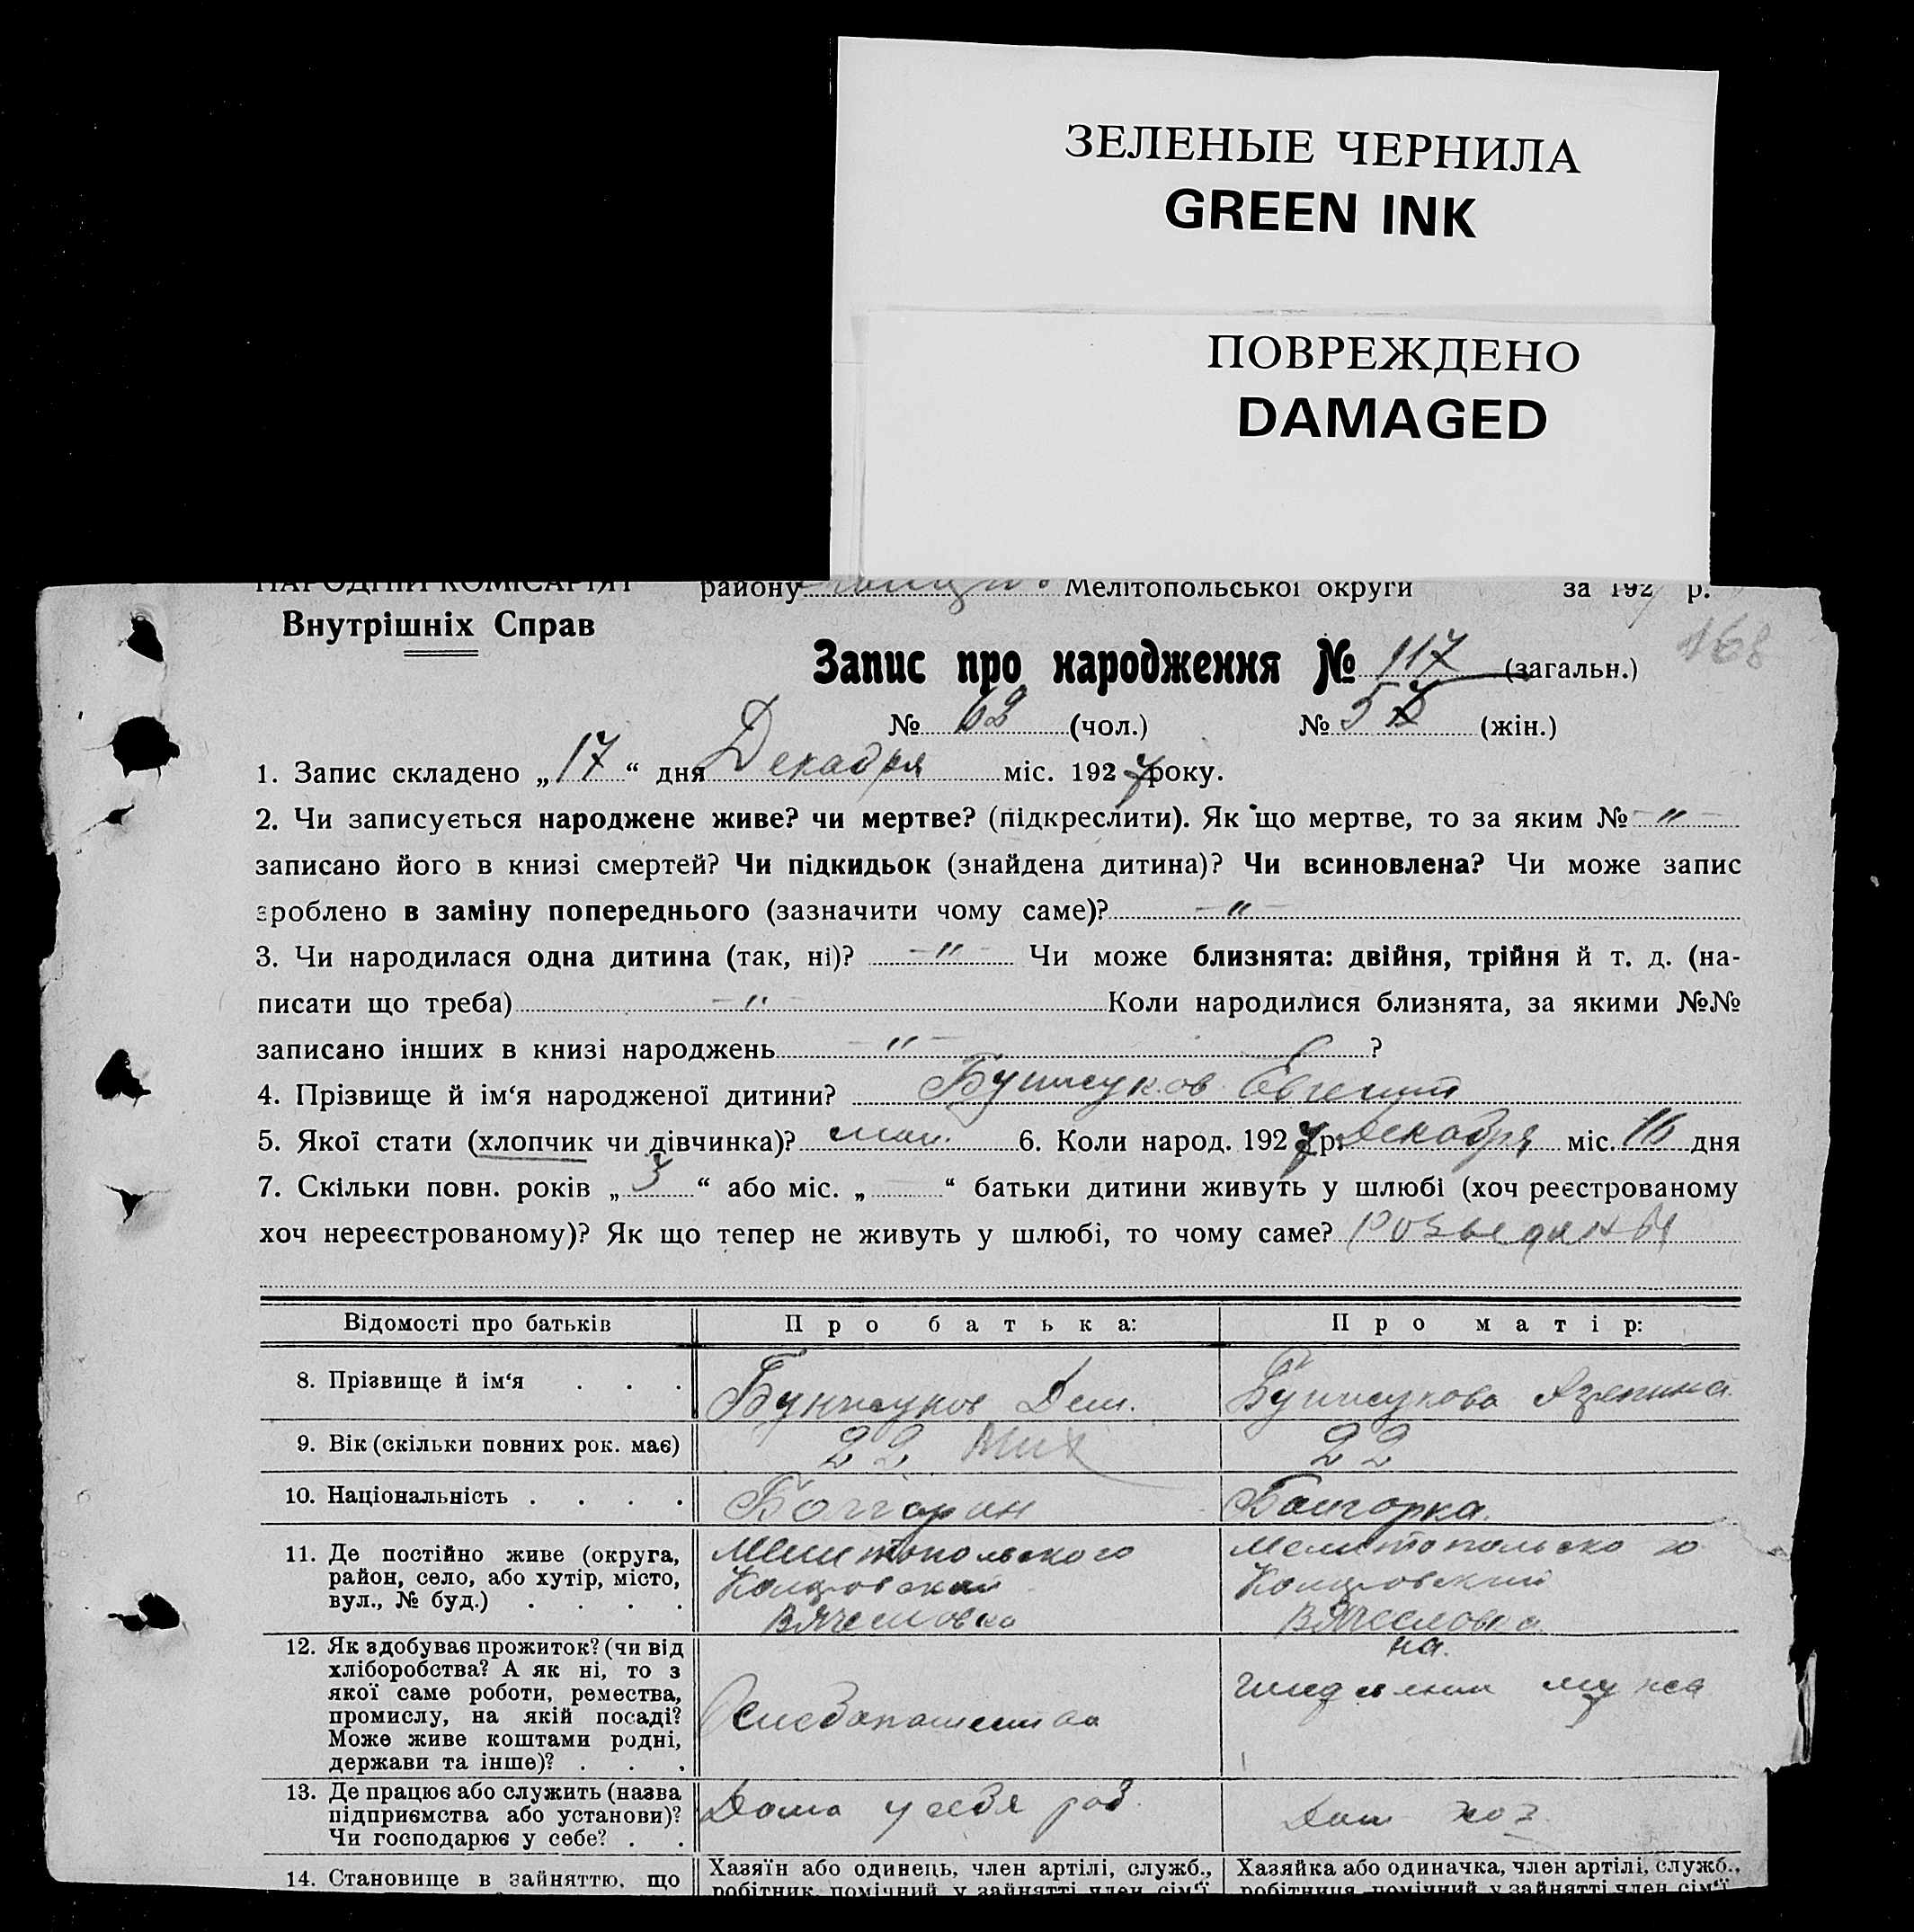 ЗЕЛЕНЫЕ ЧЕРНИЛА
GREEN INK
ПОВРЕЖДЕНО
DAMAGED
НАРОДНІЙ КОМІСАРІЯТ району Мелітопольської округи за 1927 р.
Внутрішніх Справ
168
Запис про народження № 117 (загальн.)
№ 62 (чол.) № 55 (жін.)
1. Запис складено „17“ дня Декабря міс. 1927 року.
2. Чи записується народжене живе? чи мертве? (підкреслити). Як що мертве, то за яким № -"-
записано його в книзі смертей? Чи підкидьок (знайдена дитина)? Чи всиновлена? Чи може запис
зроблено в заміну попереднього (зазначити чому саме)? -"-
3. Чи народилася одна дитина (так, ні)? -"- Чи може близнята: двійня, трійня й т. д. (на-
писати що треба) -"- Коли народилися близнята, за якими №№
записано інших в книзі народжень -"- ?
4. Прізвище й ім‘я народженої дитини? Евгений
5. Якої стати (хлопчик чи дівчинка)? 6. Коли народ. 1927 р. Декабря міс. 16 дня
7. Скільки повн. років „3“ або міс. „ “ батьки дитини живуть у шлюбі (хоч реєстрованому
хоч нереєстрованому)? Як що тепер не живуть у шлюбі, то чому саме?
Відомості про батьків Про батька: Про матір:
8. Прізвище й ім‘я . . .
9. Вік (скільки повних рок. має) 22 Мих 22
10. Національність . . . . Болгарин Болгорка.
11. Де постійно живе (округа, Мелитопольского Мелитопольско го
район, село, або хутір, місто,
вул., № буд.) . . . . Вячеловка
12. Як здобуває прожиток? (чи від на.
хліборобства? А як ні, то з
якої саме роботи, ремества, иждевении мужа
промислу, на якій посаді?
Може живе коштами родні,
держави та інше)? . . .
13. Де працює або служить (назва Дома у себя раб.
підприємства або установи)? Дом хоз.
Чи господарює у себе? . .
14. Становище в зайняттю, що Хазяїн або одинець, член артілі, служб., Хазяйка або одиначка, член артілі, служб.,
робітник, помічний у зайнятті член сім‘ї робітниця, помічний у зайнятті член сім‘ї